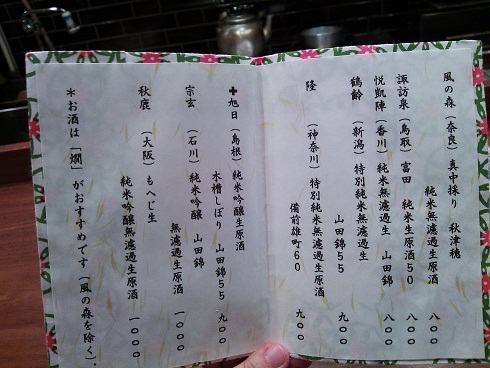 風の森(奈良)真中採り 秋津穂
純米無濾過生原酒 八〇〇
諏訪泉(鳥取)富田 純米生原酒50 八〇〇
悦凱陣(香川)純米無濾過生 山田錦 八〇〇
鶴齢 (新潟)特別純米無濾過生
山田錦55 九〇〇
隆 (神奈川)特別純米無濾過生原酒
備前雄町60 九〇〇
✚旭日(島根)純米吟醸生原酒
木槽しぼり 山田錦55 九〇〇
宗玄 (石川)純米吟醸 山田錦
無濾過生原酒 一〇〇〇
秋鹿 (大阪)もへじ生
純米吟醸無濾過生原酒 一〇〇〇
*お酒は「燗」がおすすめです(風の森を除く).